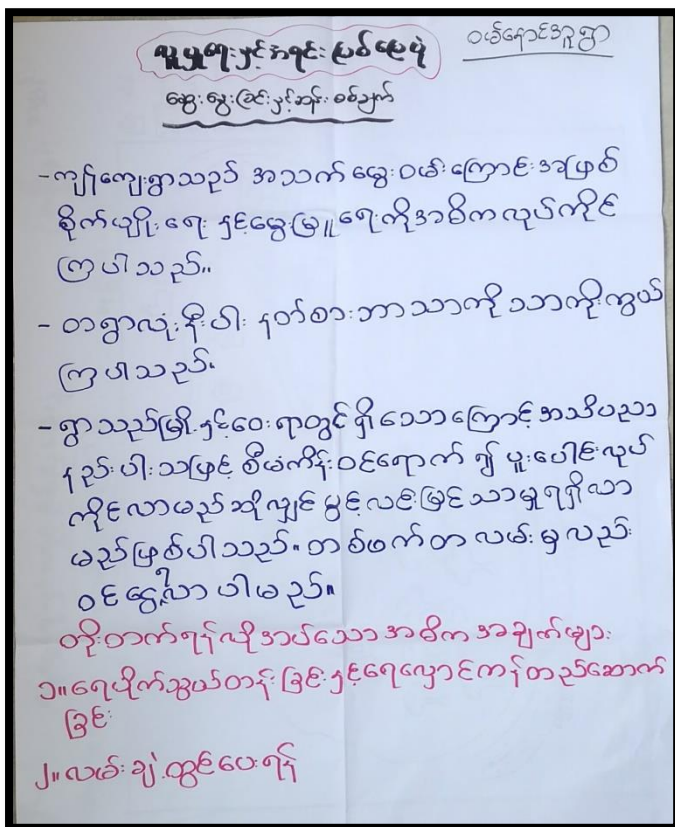 ဝမ်နောင်အူရွာ
လူမှုရေးနှင့်အရင်းပြစ်မြေပုံ
ဆွေးနွေးခြင်းနှင့်ဆန်းစစ်ချက်
- ကျွန်ကျေးရွာသည် အသက်မွေးဝမ်းကြောင်းအဖြစ်
စိုက်ပျိုးရေးနှင့်မွေးမြူရေးကိုအဓိကလုပ်ကိုင်
ကြပါသည်။
- တရွာလုံးနီးပါး နတ်စားဘာသာကိုသာကိုးကွယ်
ကြပါသည်။
- ရွာသည်မြို့နှင့်ဝေးရာတွင်ရှိသောကြောင့်အသိပညာ
နည်းပါးသဖြင့် စီမံကိန်းဝင်ရောက်၍ ပူးပေါင်းလုပ်
ကိုင်လာမည်ဆိုလျှင်ပွင့်လင်းမြင်သာမှုရရှိလာ
မည်ဖြစ်ပါသည်။ တစ်ဖက်တလမ်းမှလည်း
ဝင်ငွေရှိလာပါမည်။
တိုးတက်ရန်လိုအပ်သောအဓိကအချက်များ
၁။ ရေပိုက်သွယ်တန်းခြင်းနှင့်ရေလှောင်ကန်တည်ဆောက်
ခြင်း
၂။ လမ်းချဲ့ထွင်ပေးရန်